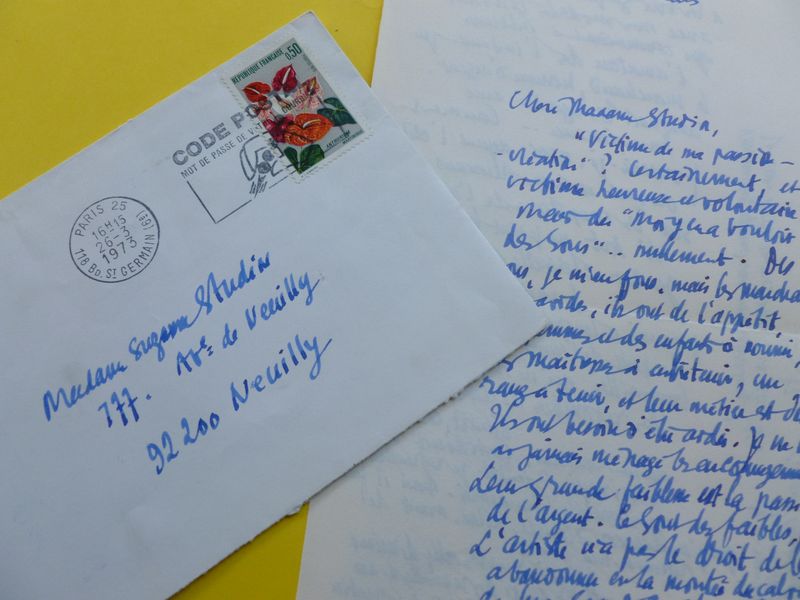 REPUBLIQUE FRANÇAISE 0,50
CODE POSTAL
MOT DE PASSE DE V
PARIS 25 (6e)
16H15
26-3
1973
118 Bd. St GERMAIN
Madame Suzanne Studin
177. Ave de Neuilly
92200 Neuilly
Chère Madame Studin,
"Victime de ma passion -
-création" ? Certainement et
victime heureuse et volontaire
mais du "moyen a vouloir
des sous".. nullement. Des
je m'en fous, mais les marchands
ils ont de l'appétit,
femmes et des enfants à nourrir,
maîtresses à entretenir, un
rang à tenir, et leur métier est
Ils ont besoin d'être aidés. Je
jamais ménagé
Leur grande faiblesse est la passion
de l'argent. Ce sont des faibles,
L'artiste n'a pas le droit de
abandonner